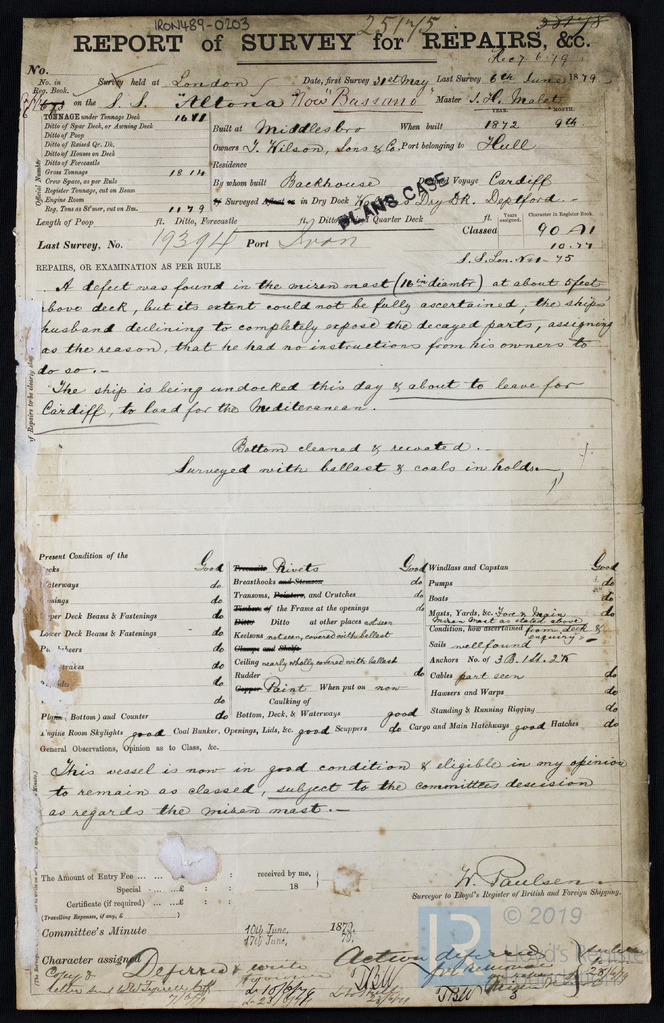 IRON489-0203
25175
REPORT of SURVEY for REPAIRS, &c.
Rec 7.6.79
No.
No. in Reg. Book. Survey held at London Date, first Survey 31st May Last Survey 6th June 1879
on the S.S. "Altona" Now "Bassano" Master J. H. Malet
TONNAGE under Tonnage Deck 1611
YEAR. MONTH.
Ditto of Spar Deck, or Awning Deck
Built at Middlesbro When built 1872 9th
Ditto of Poop
Ditto of Raised Qr. Dk.
Owners T. Wilson, Sons & Co. Port belonging to Hull
Ditto of Houses on Deck
Ditto of Forecastle
Residence
Gross Tonnage 1814
Crew Space, as per Rule
By whom built Backhouse Destined Voyage Cardiff
Register Tonnage, cut on Beam
Engine Room
If Surveyed Afloat or in Dry Dock Dry Dk. Deptford.
Reg. Tons as St'mer, cut on Bm. 1179
Official Number
PLANS CASE
Length of Poop ft. Ditto, Forecastle ft. Ditto Quarter Deck ft.
Years assigned. Character in Register Book
Classed 90 A1
10.77
Last Survey, No. 19394 Port Iron
S.S. Lon. No 1-75
REPAIRS, OR EXAMINATION AS PER RULE
A defect was found in the mizen mast (16 ins diamtr) at about 5 feet
above deck, but its extent could not be fully ascertained, the ships
husband declining to completely expose the decayed parts, assigning
as the reason, that he had no instructions from his owners to
do so. —
The ship is being undocked this day & about to leave for
Cardiff, to load for the Mediteranean.
Bottom cleaned & recoated. —
Surveyed with ballast & coals in holds.
Present Condition of the
Decks Good
Waterways do
do
Upper Deck Beams & Fastenings do
Lower Deck Beams & Fastenings do
do
do
do
do
Plank (Bottom) and Counter do
Treenails Rivets Good
Breasthooks and Stemson do
Transoms, Pointers, and Crutches do
Timbers of the Frame at the openings do
Ditto Ditto at other places not seen
Keelsons not seen, covered with ballast
Clamps and Shelfs
Ceiling nearly wholly covered with ballast
Rudder do
Copper Paint When put on now
Caulking of
Bottom, Deck, & Waterways good
Windlass and Capstan Good
Pumps do
Boats do
Masts, Yards, &c. Fore & Main do
Mizen Mast as stated above
Condition, how ascertained from deck & enquiry
Sails well found
Anchors No. of 3B. 1St. 2K
Cables part seen do
Hawsers and Warps do
Standing & Running Rigging do
Engine Room Skylights good Coal Bunker, Openings, Lids, &c. good Scuppers do Cargo and Main Hatchways good Hatches do
General Observations, Opinion as to Class, &c.
This vessel is now in good condition & eligible in my opinion
to remain as classed, subject to the committees descision
as regards the mizen mast. —
The Amount of Entry Fee ... ... £ : : received by me,
Special ... ... £ : : 18
Certificate (if required) ... £ : :
(Travelling Expenses, if any, £ )
W. Paulsen
Surveyor to Lloyd's Register of British and Foreign Shipping.
Committee's Minute 10th June, 1879.
17th June, 79.
© 2019
Lloyd's Register Foundation
Character assigned Deferred & write Action deferred
TBW
TBW